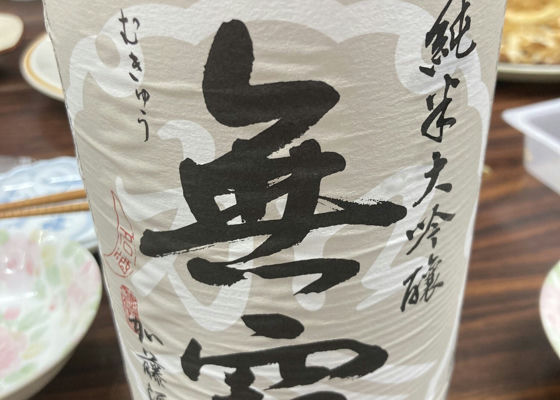 純米大吟醸
無
むきゅう
加藤